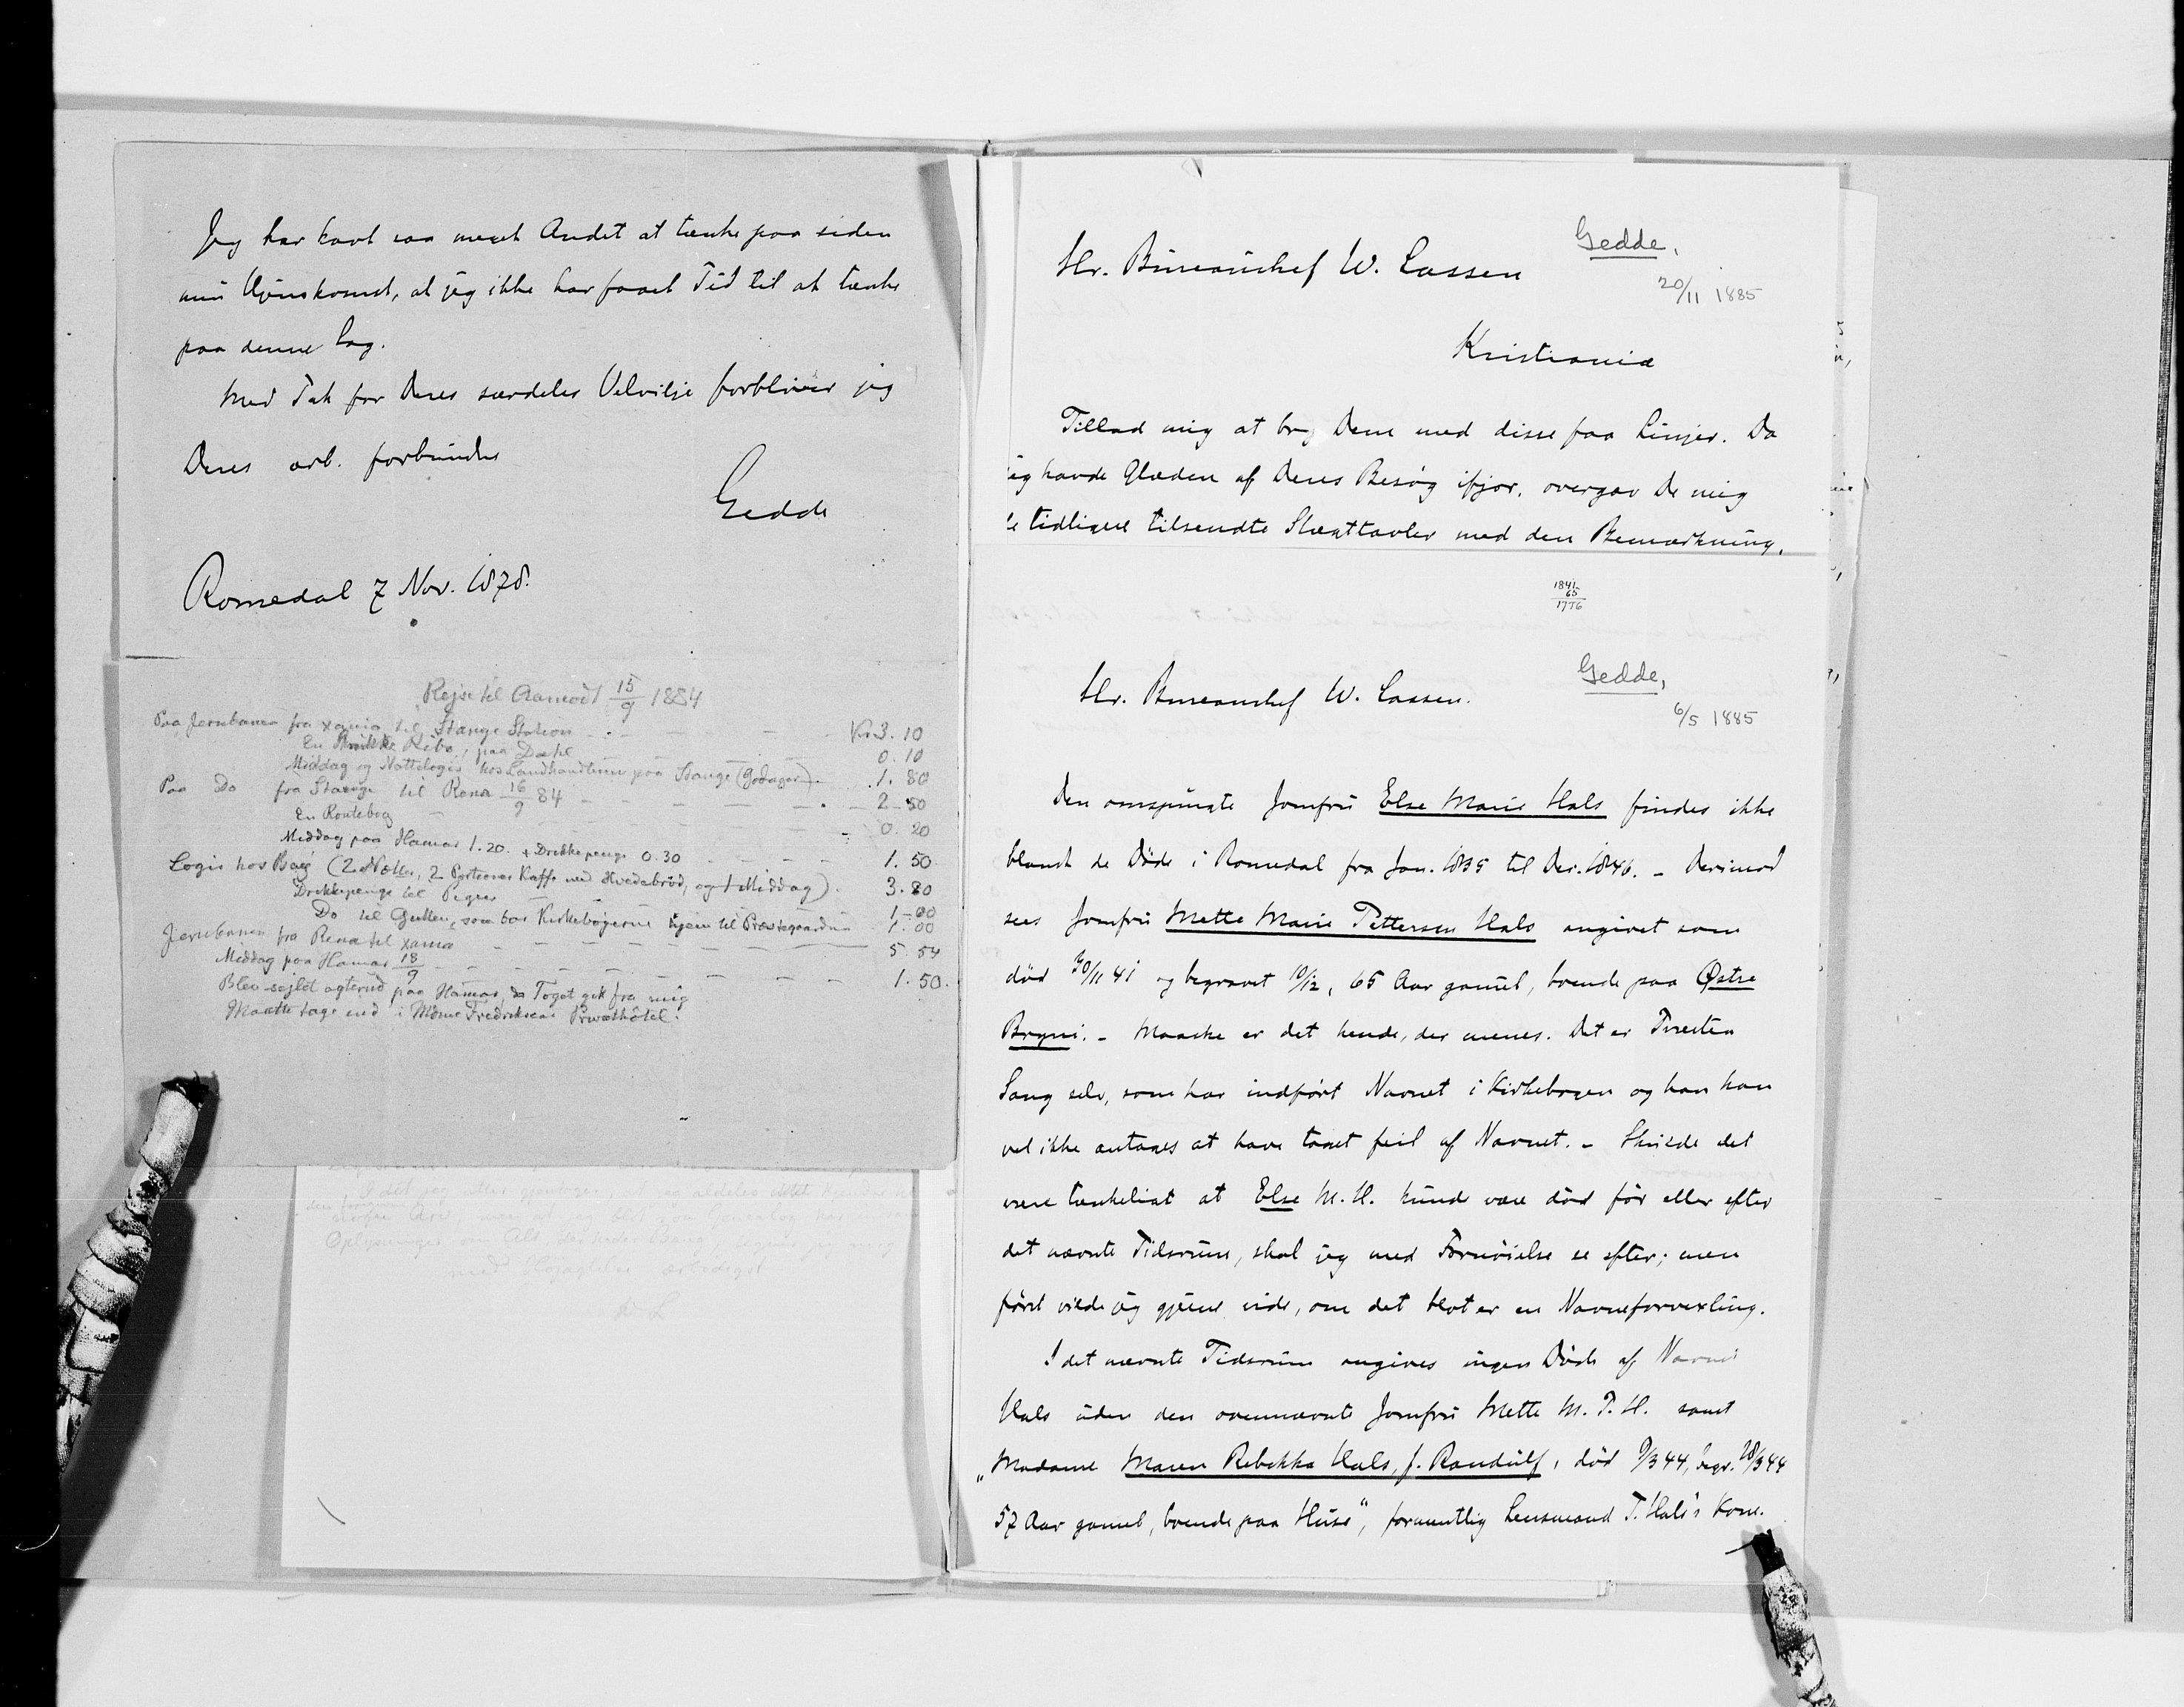 Jeg har havt saa meget Andet at tænke paa siden
min Hjemkomst, at jeg ikke har faaet Tid til at tænke
paa denne Sag.
Med Tak for Deres særdeles Velvilje forbliver jeg
Deres ærb. forbundne
Gedde
Romedal 7 Nov. 1878.
Rejse til Aamodt 15/9 1884
Paa Jernbanen fra Xania til Stange Station - - - Kr. 3.10
En Ribs, paa Do til 0.10
Middag og Natteloqis hos Landhandleren paa Stange (Godager). 1.80
Paa Do fra Stange til Rena 16/9 84 - - - - 2.50
En Routebog - - - - 0.20
Middag paa Hamar 1.20. + Drikkepenge 0.30 - - - - 1.50
Logis hos Bay (2 Nætter, 2 Portioner Kaffe med Hvedebrød, og 1 Middag). 3.80
Drikkepenge til Pigen 1-00
Do til Gutten, som bar Kirkebøgerne hjem til Præstegaarden 1.00
Jernbanen fra Rena til Xania - - - 5.54
Middag paa Hamar 18/9 - - - - 1.50.
Blev sejlet agterud paa Hamar, da Toget gik fra mig
Maatte tage ind i Mdme Fredriksens Privathôtel.
I det jeg atter gjentager, at jeg aldeles ikke
Oplysninger om Alt,
med Højagtelse ærbødigst
W L
Hr. Bureauchef W. Lassen
Gedde,
20/11 1885
Kristiania
Tillad mig at Dem med disse faa Linjer. Da
jeg havde Glæden af Deres Besøg ifjor, overgav De mig
de tidligere tilsendte Slægttavler med den Bemærkning,
1841
65
1776
Hr. Bureauchef W. Lassen.
Gedde,
6/5 1885
Den omspurgte Jomfru Else Marie Hals findes ikke
blandt de Døde i Romedal fra Jan. 1835 til Dec. 1846. - Derimod
sees Jomfru Mette Marie Pettersen Hals angivet som
død 30/11 41 og begravet 10/12, 65 Aar gamel, boende paa Østre
Bryni. - Maaske er det hende, der menes. Det er Provsten
Lang selv, som har indført Navnet i Kirkebogen og han kan
vel ikke antages at have taget feil af Navnet. - Skulde det
være tænkeligt at Else M. H. kunde være død før eller efter
det nævnte Tidsrum, skal jeg med Fornøielse se efter; men
først vilde jeg gjerne vide, om det blot er en Navneforvexling.
I det nævnte Tidsrum angives ingen Døde af Navnet
Hals uden den ovennævnte Jomfru Mette M. P. H. samt
"Madame Maren Rebekka Hals, f. Randulf, død 9/3 44, begr. 28/3 44
57 Aar gamel, boende paa Huse", formentlig Lensmand T. Hals's Kone.